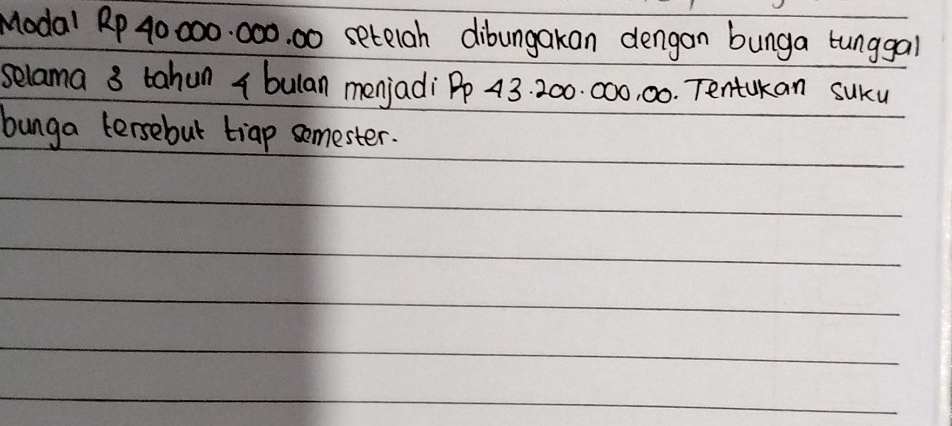 Modal Rp 40 000.000.00 setelah dibungakan dengan bunga tunggal
selama 3 tahun 4 bulan menjadi Rp 43.200.000,00. Tentukan suku
bunga tersebut tiap semester.